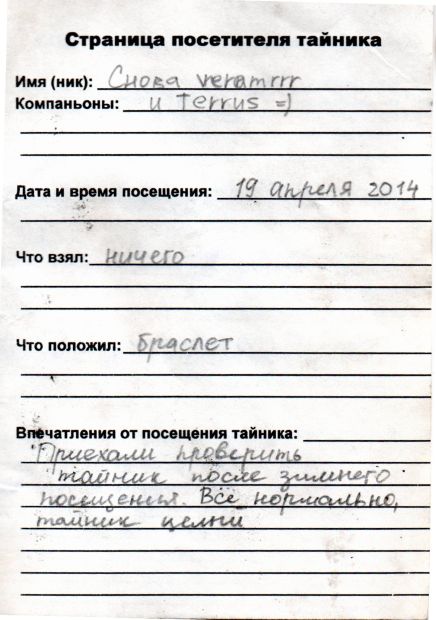 Страница посетителя тайника
Имя (ник): Снова veramrrr
Компаньоны: и Terrus =)
Дата и время посещения: 19 апреля 2014
Что взял: ничего
Что положил: браслет
Впечатления от посещения тайника:
Приехали проверить
тайник после зимнего
посещенья. Всё нормально,
тайник целый